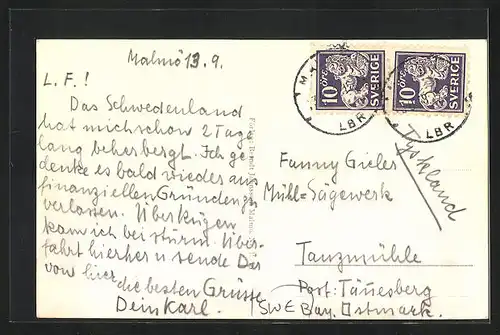 Malmö 13.9.
L. F.!
Das Schwedenland
hat mich schon 2 Tage
lang beherbergt. Ich ge-
denke es bald wieder aus
finanziellen Gründen zu
verlassen. Über Rügen
kam ich bei Sturm. Über-
fahrt hierher u sende Dir
von hier die besten Grüsse
Dein Karl.
10 öre SVERIGE
10 öre SVERIGE
LBR
LBR
Tyskland
Fanny Gieler
Mühl= Sägewerk
Tanzmühle
Post: Tännesberg
Bay. Ostmark.